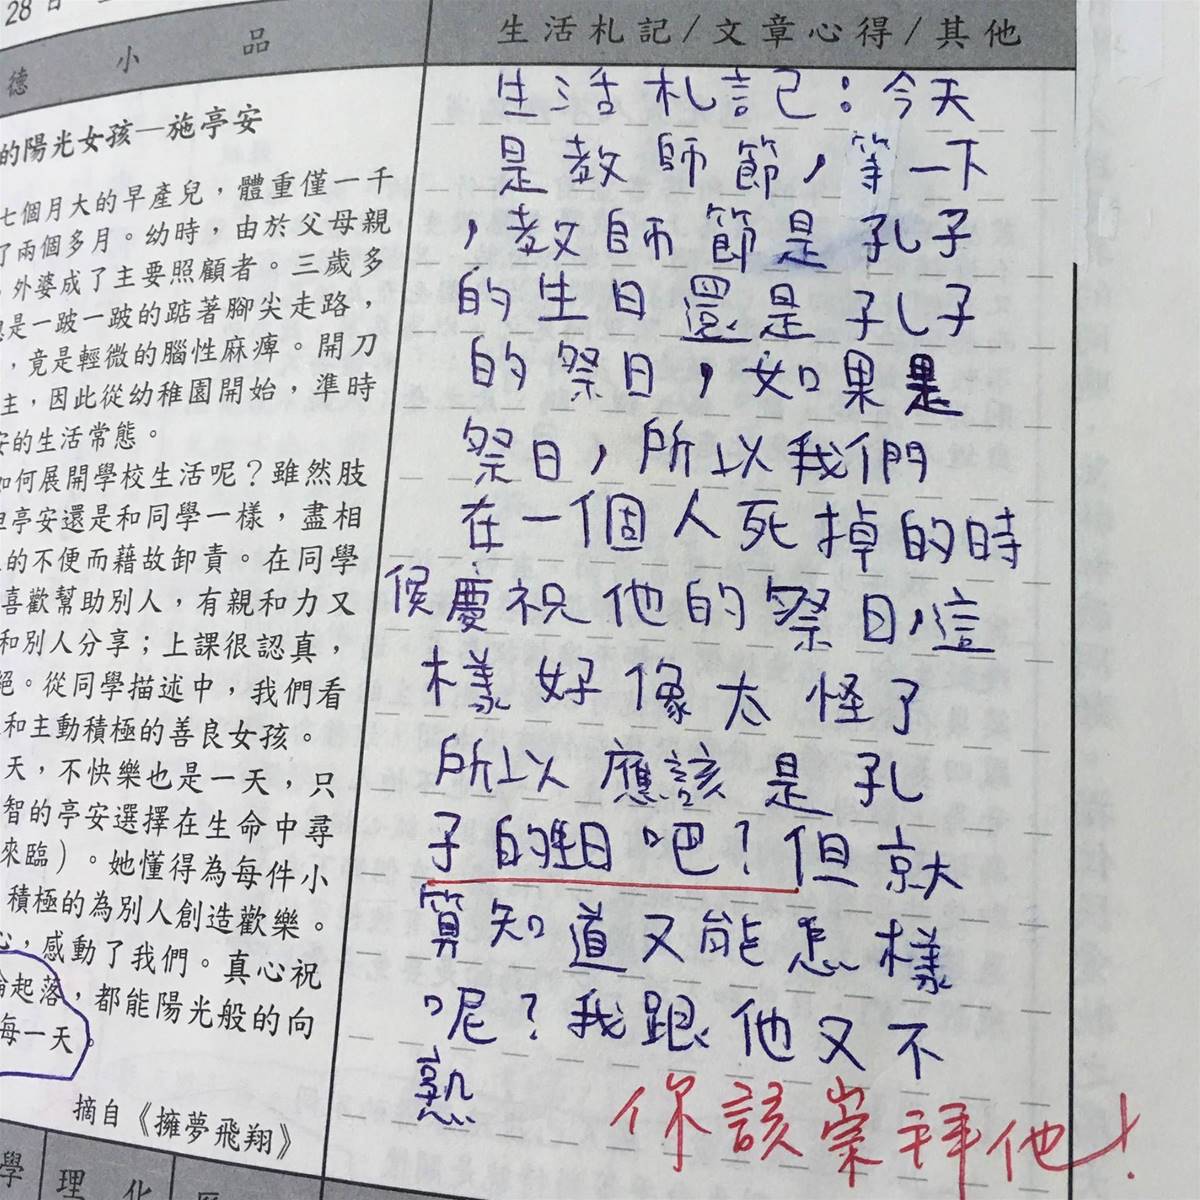 28日
德小品
的陽光女孩—施亭安
七個月大的早產兒，體重僅一千
了兩個多月。幼時，由於父母親
，外婆成了主要照顧者。三歲多
是一跛一跛的踮著腳尖走路，
，竟是輕微的腦性麻痺。開刀
主，因此從幼稚園開始，準時
安的生活常態。
如何展開學校生活呢？雖然肢
但亭安還是和同學一樣，盡相
的不便而藉故卸責。在同學
喜歡幫助別人，有親和力又
和別人分享；上課很認真，
絕。從同學描述中，我們看
和主動積極的善良女孩。
天，不快樂也是一天，只
智的亭安選擇在生命中尋
來臨）。她懂得為每件小
積極的為別人創造歡樂。
心，感動了我們。真心祝
起落，都能陽光般的向
每一天。
摘自《擁夢飛翔》
學
理化
生活札記/文章心得/其他
生活札記：今天
是教師節，等一下
，教師節是孔子
的生日還是孔子
的祭日，如果是
祭日，所以我們
在一個人死掉的時
候慶祝他的祭日，這
樣好像太怪了
所以應該是孔
子的生日吧？但就
算知道又能怎樣
呢？我跟他又不
熟
你該崇拜他！